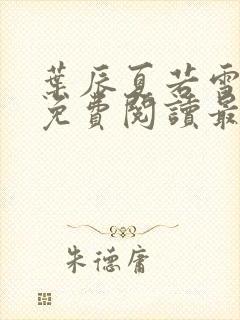 葉辰夏若雪
免費閱讀最
朱德庸